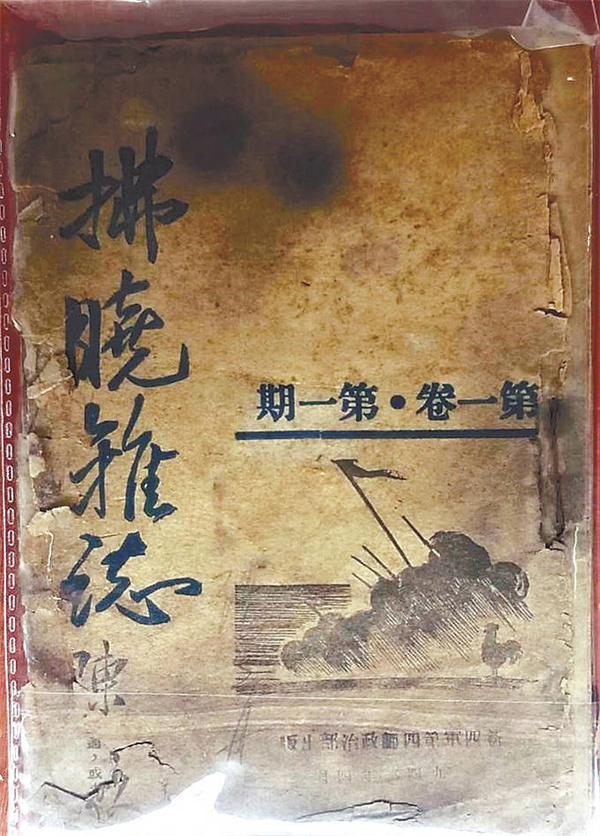 拂曉雜誌 陳
第一卷・第一期
新四軍第四師政治部出版
九四 年四月